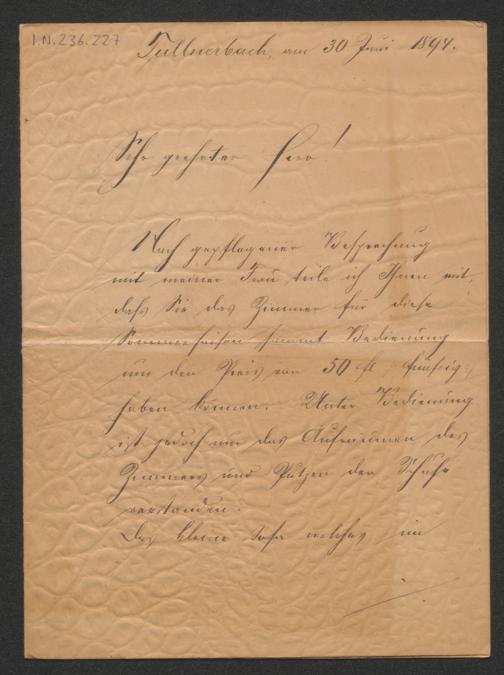 I.N. 236.227
Tullnerbach, am 30 Juni 1894.
Sehr geehrter Herr!
Nach gepflogener Besprechung
mit meiner Frau teile ich Ihnen mit,
daß Sie das Zimmer für diese
Sommersaison sammt Bedienung
um den Preis von 50 fl fünfzig
haben können. Unter Bedienung
ist jedoch nur das Aufräumen des
Zimmers und Putzen der Schuhe
verstanden.
Das kleine Sofa welches im